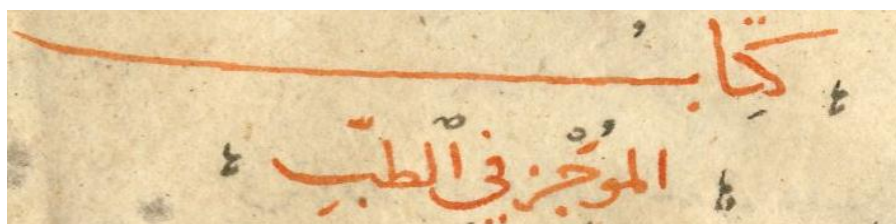 كِتابُ
المُوجَز في الطبِّ